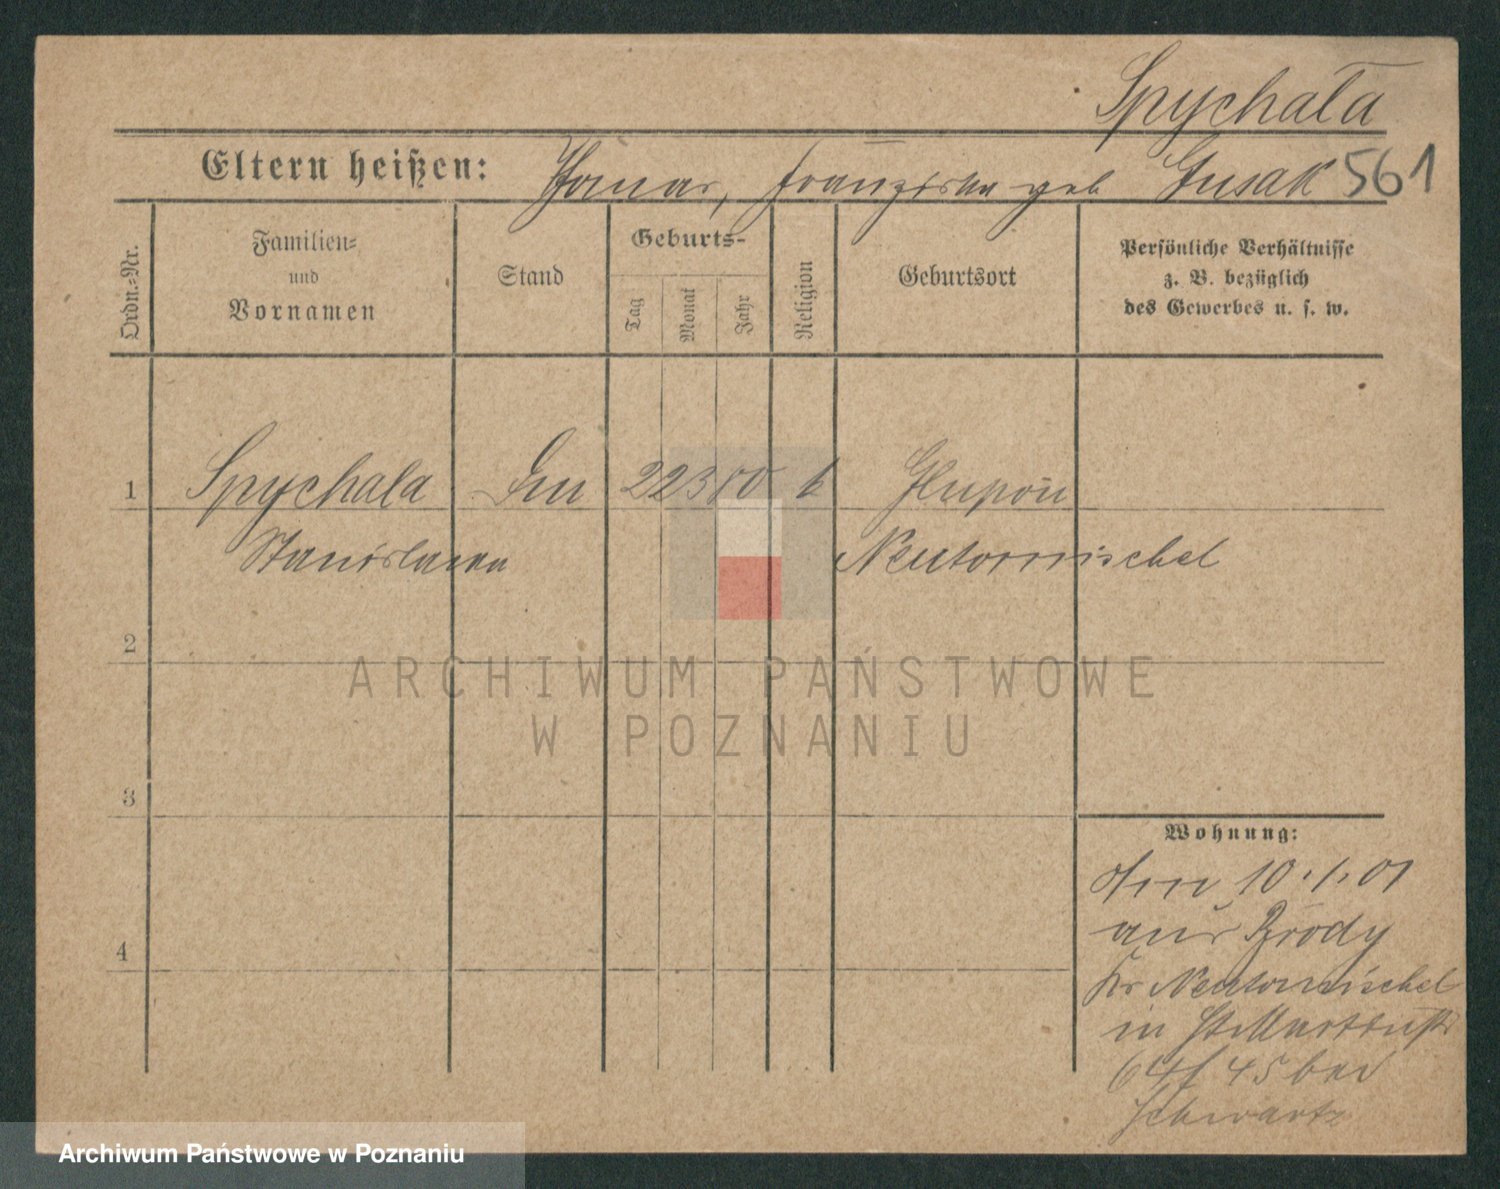 Spychała
Eltern heißen: Thomas, Franziska geb Gusak 561
Ordn.-Nr.
Familien-
und
Vornamen
Stand
Geburts-
Tag
Monat
Jahr
Religion
Geburtsort
Persönliche Verhältnisse
z. B. bezüglich
des Gewerbes u. s. w.
1 Spychala 22 3 80 k Glupon
Stanislawa Neutomischel
2
3
4
Wohnung:
Am 10.1.01
aus Brody
Kr Neutomischel
in St Martinstr
64 / 45 bei
Schwartz
ARCHIWUM PAŃSTWOWE
W POZNANIU
Archiwum Państwowe w Poznaniu